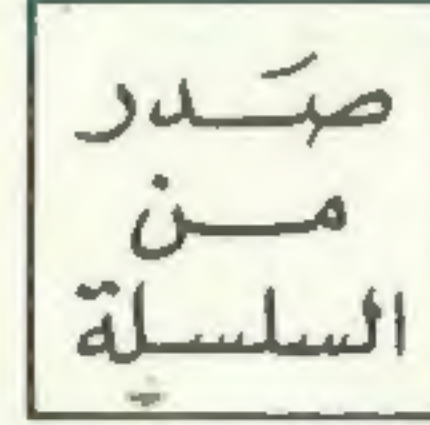 صَدر
من
السلسلة